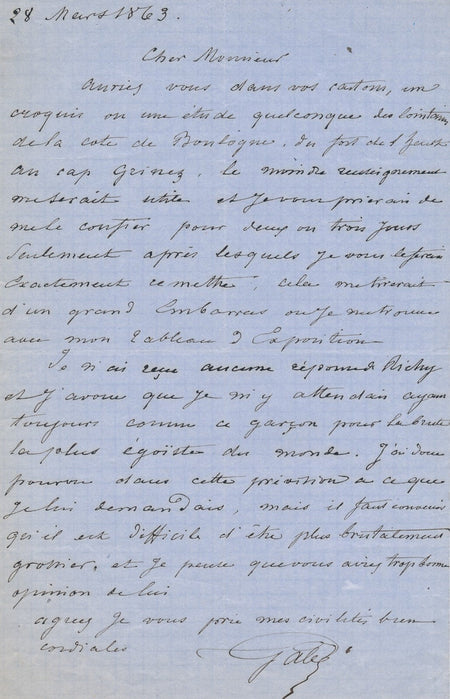 28 Mars 1863.
Cher Monsieur
auriez vous dans vos cartons, un
croquis ou une étude quelconque des lointains
de la cote de Boulogne, du fort de l'
au cap Grinez, le moindre renseignement
me serait utile et je vous prierais de
me le confier pour deux ou trois jours
seulement après lesquels je vous le ferai
exactement remettre, cela me tirerait
d'un grand Embarras ou je me trouve
avec mon tableau d'Exposition
Je n'ai reçu aucune réponse de
et j'avoue que je m'y attendais ayant
toujours connu ce garçon pour la brute
la plus égoïste du monde. J'ai donc
pourvu dans cette prévision a ce que
je lui demandais, mais il faut convenir
qu'il est difficile d'être plus brutalement
grossier, et je pense que vous aviez trop bonne
opinion de lui
agréez je vous prie mes civilités bien
cordiales